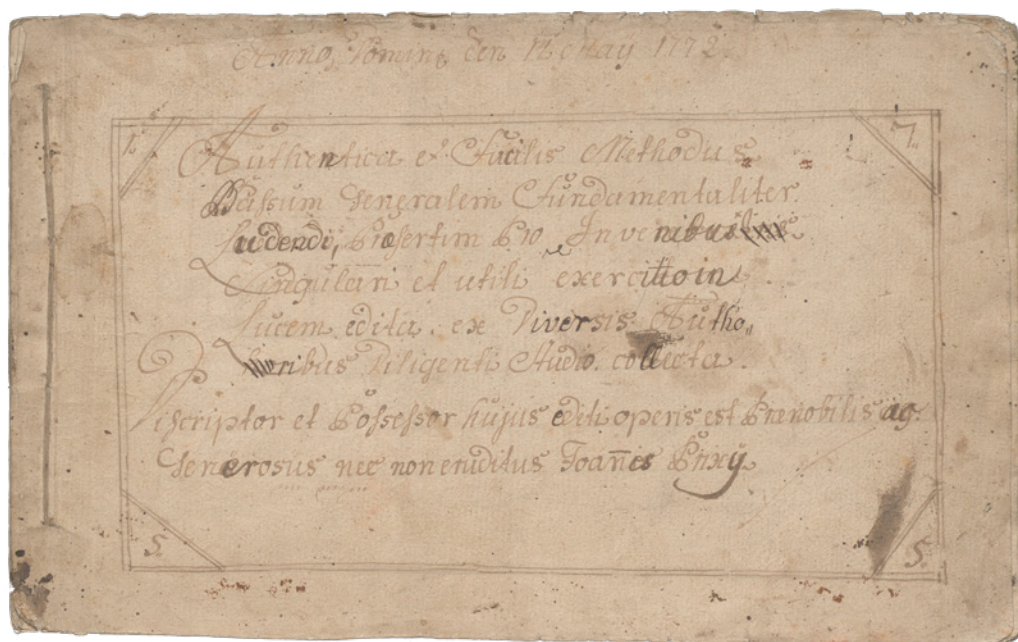 Anno Domini den 12 Maÿ 1772
1. 7.
Authentica et Facilis Methodus
Bassum Generalem Fundamentaliter
Ludendi, Præsertim Pro Juvenibus
Singulari et utili exercittoin
Lucem edita. ex Diversis Autho„
ribus Diligenti Studio collecta.
Discriptor et Possessor hujus editi operis est Prænobilis ag.
Generosus nec non eruditus Joañes
5. 5.